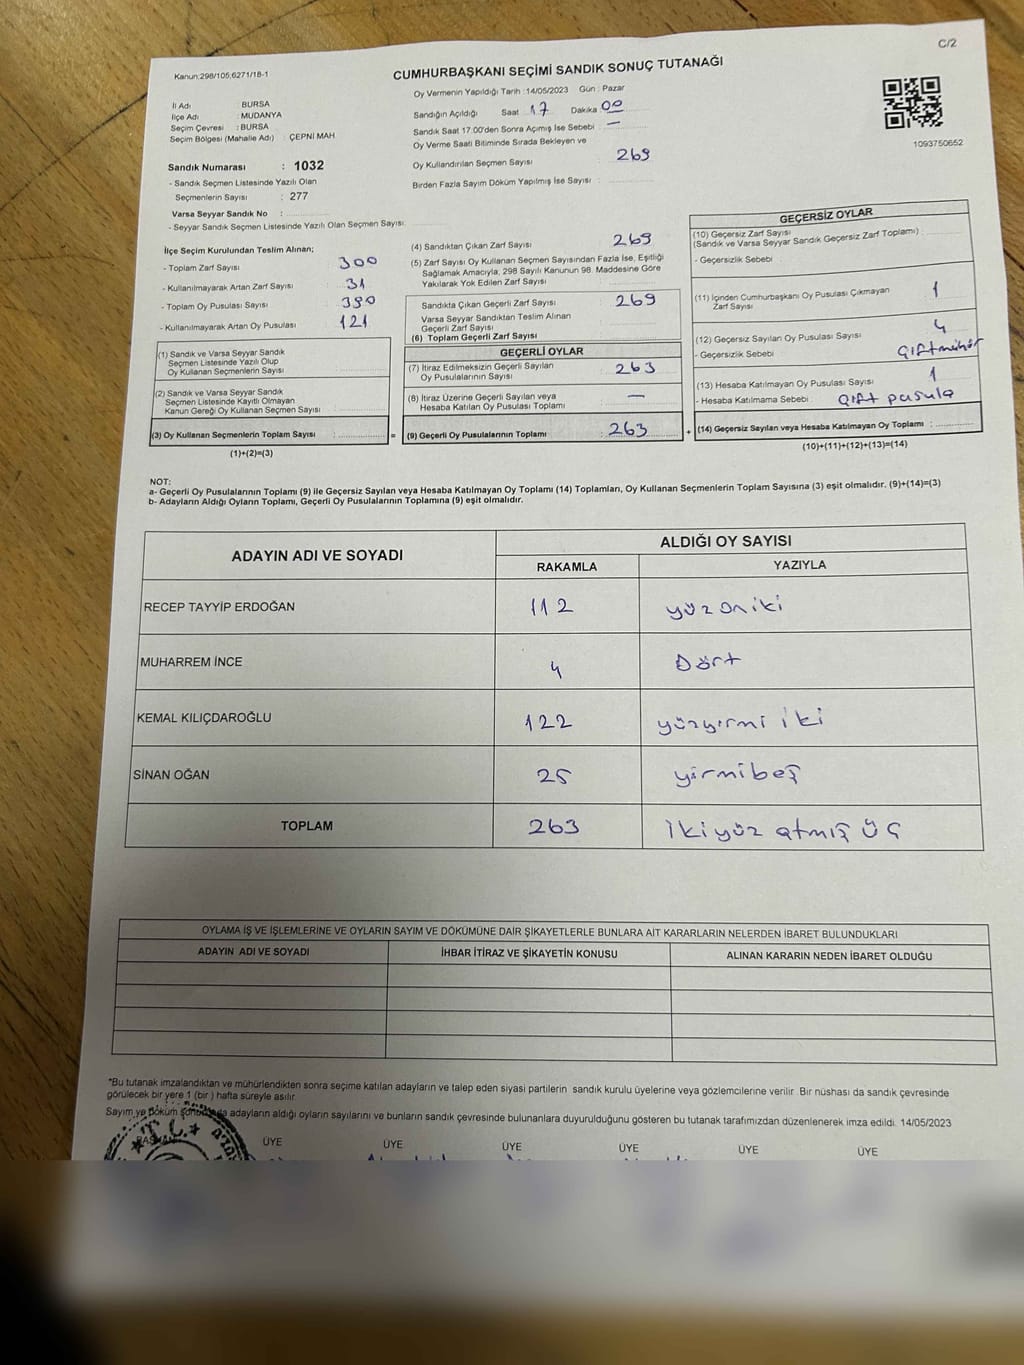 C/2
Kanun:298/105;6271/18-1
CUMHURBAŞKANI SEÇİMİ SANDIK SONUÇ TUTANAĞI
Oy Vermenin Yapıldığı Tarih :14/05/2023 Gün : Pazar
İli Adı : BURSA
İlçe Adı : MUDANYA
Seçim Çevresi : BURSA
Seçim Bölgesi (Mahalle Adı) : ÇEPNİ MAH.
Sandık Numarası : 1032
- Sandık Seçmen Listesinde Yazılı Olan
Seçmenlerin Sayısı : 277
Varsa Seyyar Sandık No :
- Seyyar Sandık Seçmen Listesinde Yazılı Olan Seçmen Sayısı:
Sandığın Açıldığı Saat 17 Dakika 00
Sandık Saat 17:00'den Sonra Açımış İse Sebebi : —
Oy Verme Saati Bitiminde Sırada Bekleyen ve
Oy Kullandırılan Seçmen Sayısı : 269
Birden Fazla Sayım Döküm Yapılmış İse Sayısı :
1093750652
İlçe Seçim Kurulundan Teslim Alınan;
- Toplam Zarf Sayısı : 300
- Kullanılmayarak Artan Zarf Sayısı : 31
- Toplam Oy Pusulası Sayısı : 390
- Kullanılmayarak Artan Oy Pusulası : 121
(1) Sandık ve Varsa Seyyar Sandık
Seçmen Listesinde Yazılı Olup
Oy Kullanan Seçmenlerin Sayısı :
(2) Sandık ve Varsa Seyyar Sandık
Seçmen Listesinde Kayıtlı Olmayan
Kanun Gereği Oy Kullanan Seçmen Sayısı :
(3) Oy Kullanan Seçmenlerin Toplam Sayısı :
(1)+(2)=(3)
(4) Sandıktan Çıkan Zarf Sayısı : 269
(5) Zarf Sayısı Oy Kullanan Seçmen Sayısından Fazla İse, Eşitliği
Sağlamak Amacıyla, 298 Sayılı Kanunun 98. Maddesine Göre
Yakılarak Yok Edilen Zarf Sayısı :
Sandıkta Çıkan Geçerli Zarf Sayısı : 269
Varsa Seyyar Sandıktan Teslim Alınan
Geçerli Zarf Sayısı :
(6) Toplam Geçerli Zarf Sayısı :
GEÇERLİ OYLAR
(7) İtiraz Edilmeksizin Geçerli Sayılan
Oy Pusulalarının Sayısı : 263
(8) İtiraz Üzerine Geçerli Sayılan veya
Hesaba Katılan Oy Pusulası Toplamı : —
= (9) Geçerli Oy Pusulalarının Toplamı : 263
GEÇERSİZ OYLAR
(10) Geçersiz Zarf Sayısı
(Sandık ve Varsa Seyyar Sandık Geçersiz Zarf Toplamı) :
- Geçersizlik Sebebi :
(11) İçinden Cumhurbaşkanı Oy Pusulası Çıkmayan
Zarf Sayısı : 1
(12) Geçersiz Sayılan Oy Pusulası Sayısı : 4
- Geçersizlik Sebebi : Çift mühür
(13) Hesaba Katılmayan Oy Pusulası Sayısı : 1
- Hesaba Katılmama Sebebi : Çift pusula
+ (14) Geçersiz Sayılan veya Hesaba Katılmayan Oy Toplamı :
(10)+(11)+(12)+(13)=(14)
NOT:
a- Geçerli Oy Pusulalarının Toplamı (9) ile Geçersiz Sayılan veya Hesaba Katılmayan Oy Toplamı (14) Toplamları, Oy Kullanan Seçmenlerin Toplam Sayısına (3) eşit olmalıdır. (9)+(14)=(3)
b- Adayların Aldığı Oyların Toplamı, Geçerli Oy Pusulalarının Toplamına (9) eşit olmalıdır.
ADAYIN ADI VE SOYADI ALDIĞI OY SAYISI
RAKAMLA YAZIYLA
RECEP TAYYİP ERDOĞAN 112 yüz on iki
MUHARREM İNCE 4 Dört
KEMAL KILIÇDAROĞLU 122 yüzyirmi iki
SİNAN OĞAN 25 yirmibeş
TOPLAM 263 İkiyüz atmış üç
OYLAMA İŞ VE İŞLEMLERİNE VE OYLARIN SAYIM VE DÖKÜMÜNE DAİR ŞİKAYETLERLE BUNLARA AİT KARARLARIN NELERDEN İBARET BULUNDUKLARI
ADAYIN ADI VE SOYADI İHBAR İTİRAZ VE ŞİKAYETİN KONUSU ALINAN KARARIN NEDEN İBARET OLDUĞU
*Bu tutanak imzalandıktan ve mühürlendikten sonra seçime katılan adayların ve talep eden siyasi partilerin sandık kurulu üyelerine veya gözlemcilerine verilir. Bir nüshası da sandık çevresinde
görülecek bir yere 1 (bir ) hafta süreyle asılır.
Sayım ve Döküm adayların aldığı oyların sayılarını ve bunların sandık çevresinde bulunanlara duyurulduğunu gösteren bu tutanak tarafımızdan düzenlenerek imza edildi. 14/05/2023
BAŞKAN ÜYE ÜYE ÜYE ÜYE ÜYE ÜYE
T.C.